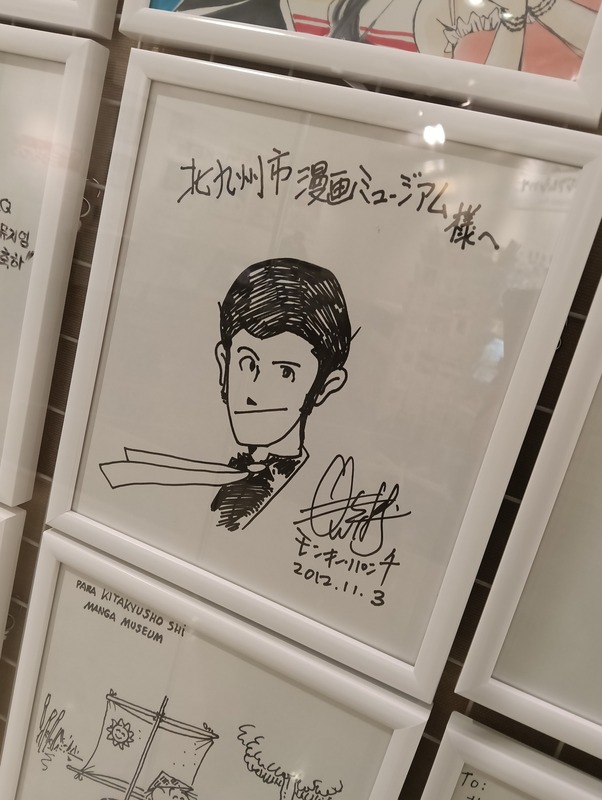 北九州市漫画ミュージアム
様へ
モンキー・パンチ
2012.11.3
PARA KITAKYUSHO SHI
MANGA MUSEUM
To: